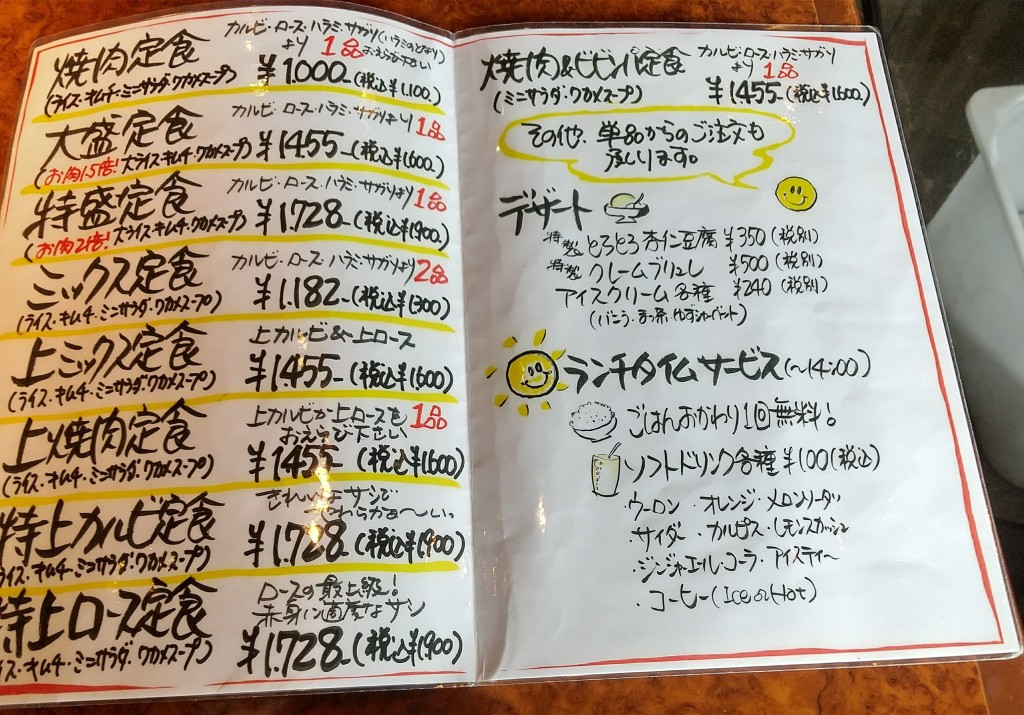 焼肉定食
カルビ・ロース・ハラミ・サガリ(ハラミのとなり)
より1品おえらび下さい
(ライス・キムチ・ミニサラダ・ワカメスープ)
¥1.000-(税込¥1,100.)
大盛定食
カルビ・ロース・ハラミ・サガリより1品
(お肉1.5倍!大ライス・キムチ・ワカメスープ)
¥1455-(税込¥1600)
特盛定食
カルビ・ロース・ハラミ・サガリより1品
(お肉2倍!大ライス・キムチ・ワカメスープ)
¥1.728-(税込¥1,900.)
ミックス定食
カルビ・ロース・ハラミ・サガリより2品
(ライス・キムチ・ミニサラダ・ワカメスープ)
¥1.182-(税込¥1300)
上ミックス定食
上カルビ&上ロース
(ライス・キムチ・ミニサラダ・ワカメスープ)
¥1455-(税込¥1,600)
上焼肉定食
上カルビか上ロースを1品
おえらび下さい
(ライス・キムチ・ミニサラダ・ワカメスープ)
¥1455-(税込¥1600)
特上カルビ定食
きれいなサシで
やわらかぁ〜い。
ライス・キムチ・ミニサラダ・ワカメスープ)
¥1.728-(税込¥1,900)
特上ロース定食
ロースの最上級!
赤身に適度なサシ
イス・キムチ・ミニサラダ・ワカメスープ)
¥1.728-(税込¥1,900)
焼肉&ビビンバ定食
カルビ・ロース・ハラミ・サガリ
より1品
(ミニサラダ・ワカメスープ)
¥1455-(税込¥1600)
その他、単品からのご注文も
承ります。
デザート
特製 とろとろ杏仁豆腐 ¥350(税別)
特製 クレームブリュレ ¥500(税別)
アイスクリーム各種 ¥240(税別)
(バニラ・まっ茶・ゆずシャーベット)
ランチタイムサービス(〜14:00)
ごはんおかわり1回無料!
ソフトドリンク各種¥100(税込)
・ウーロン・オレンジ・メロンソーダ
サイダー・カルピス・レモンスカッシュ
・ジンジャーエール・コーラ・アイスティー
・コーヒー(Ice or Hot)